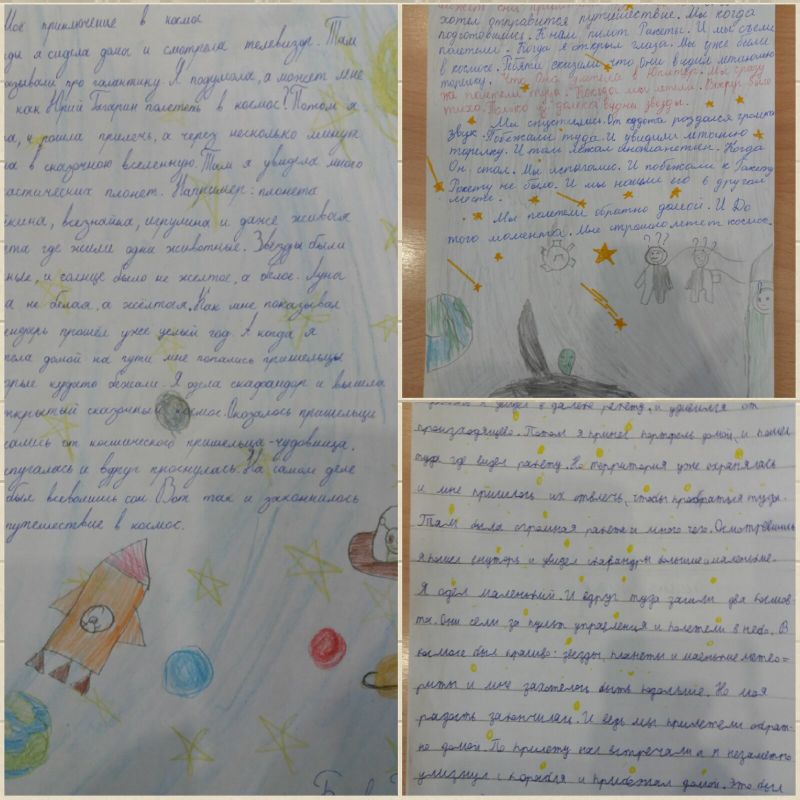 Мое приключение в космос
ды я сидела дома и смотрела телевизор. Там
азывали про галактику. Я подумала, а может мне
как Юрий Гагарин полететь в космос? Потом я
ла, и пошла прилечь, а через несколько минут
ла в сказочною вселенную. Там я увидела много
астических планет. Например: планета
йкина, всезнайка, игрулина и даже живая
ета где жили одна животные. Звезды были
ные, и солнце было не желтое, а белое. Луна
а не белая, а жёлтая. Как мне показывал
ендарь прошёл уже целый год. А когда я
тела домой на пути мне попались пришельцы
орые кудато бежали. Я одела скафандор и вышла
ткрытый сказочный космос. Оказалось пришельце
сались от космического пришельца-чудовища.
спугалась и вдруг проснулась. На самом деле
был всеволишь сон. Вот так и закончилось
путешествие в космос.
хотел отправится путешествие. Мы когда
подготовились. К нам пилит Ракета. И мы сели
полетели. Когда я открыл глаза. Мы уже были
в космосе. Ребята сказали что они видели летаюшою
торелку. Что она улетела в Юпитер. Мы сразу
же полетели туда. Посюда мы летели. Вокруг было
тихо. Только в далике видны звезды.
Мы спустились. От куддота роздался громкий
звук. Побежали туда. И увидили мточною
тарелку. И там лежал инопланетин. Когда
Он стал. Мы испогались. И побежали к Ракету
Ракету не было. И мы нашли его в другом
месте.
Мы полители обратно домой. И До
того момента. Мне страшно летет космос.
в далеке ракету, и удивился от
произходящего. Потом я принес портфель домой, и пошел
туда где видел ракету. Но территория уже охранялась
и мне пришлось их отвлечь, чтобы пробраться туда.
Там была огромная ракета и много чего. Осмотревшись
я пошел снуторь и увидел скафандры большие и маленькие.
Я одел маленький. И вдруг туда зашли два космов-
та. Они сели за пульт управления и полетели в небо. В
космосе был красиво: звезды планеты и маенькие метео=
риты и мне захотелось быть подольше. Но моя
радость закончилась. И ведь мы прилетели обрат-
но домой. По прилету нас встречали а я незаметно
улизнул с корабля и прибежал домой. Это был